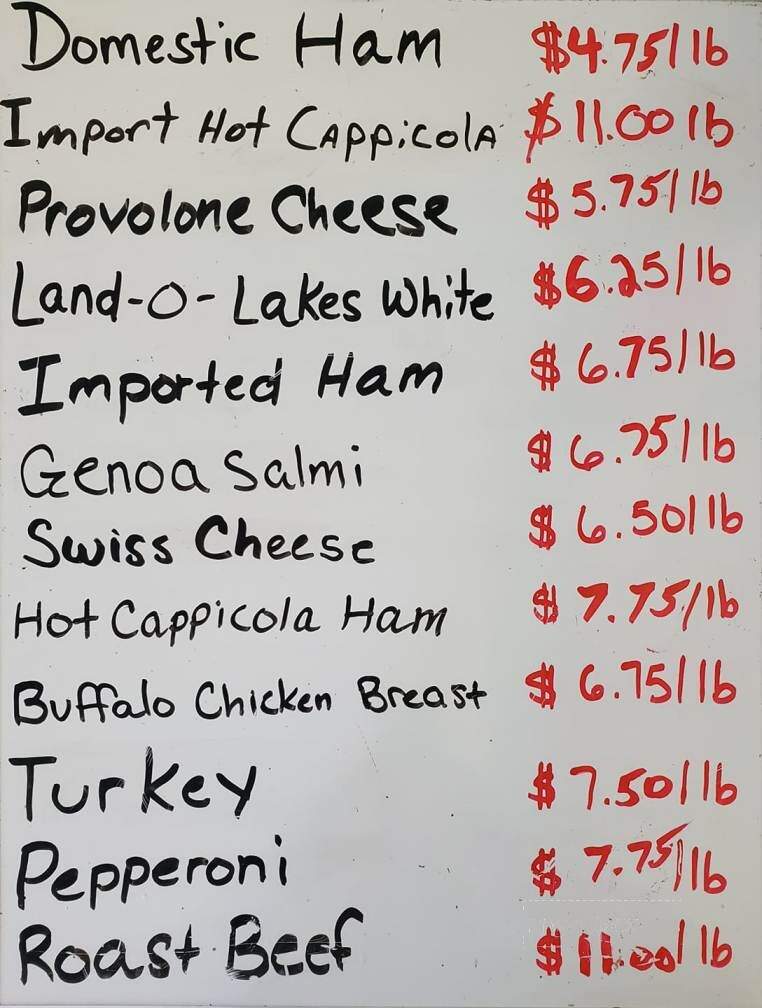 Domestic Ham $4.75/lb
Import Hot Cappicola $11.00 lb
Provolone Cheese $5.75/lb
Land-O-Lakes White $6.25/lb
Imported Ham $6.75/lb
Genoa Salmi $6.75/lb
Swiss Cheese $6.50/lb
Hot Cappicola Ham $7.75/lb
Buffalo Chicken Breast $6.75/lb
Turkey $7.50/lb
Pepperoni $7.75/lb
Roast Beef $11.00/lb